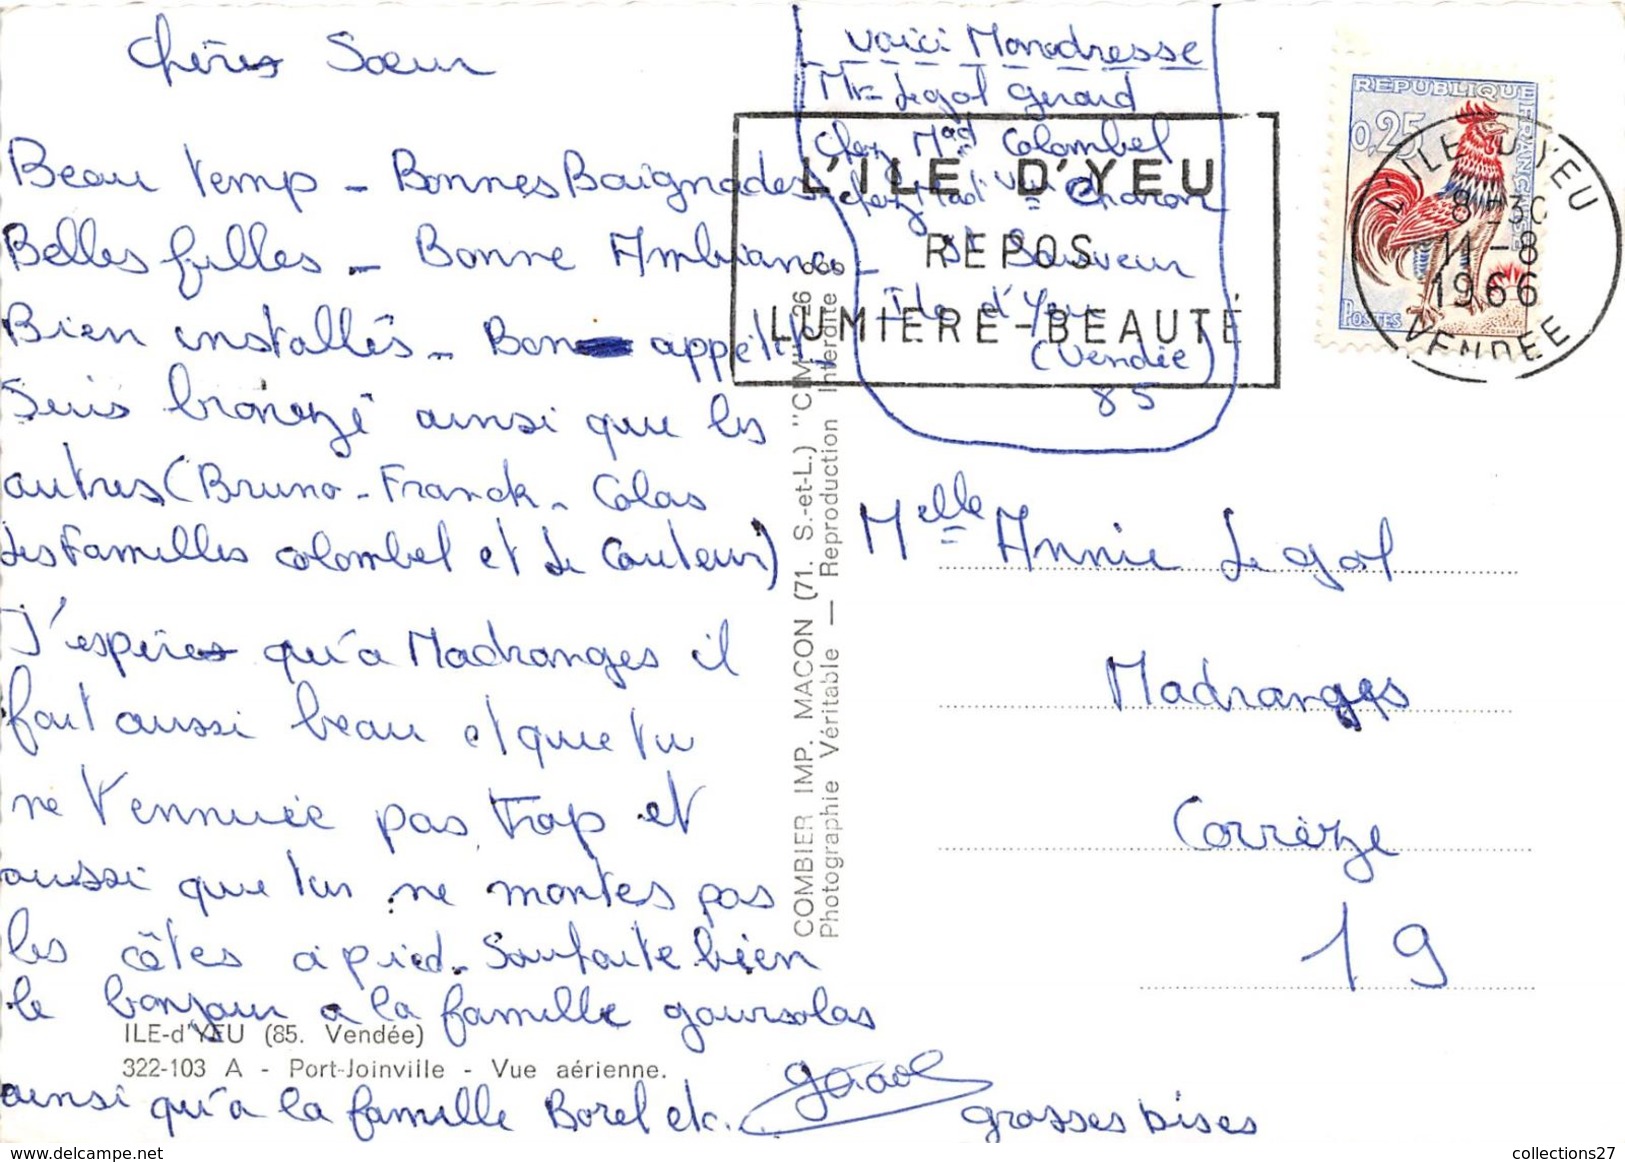 Chères Sœur
Beau temp - Bonnes Baignades
Belles filles - Bonne Ambiance -
Bien installés - Bon appétit
Suis bronzé ainsi que les
autres (Bruno - Franck - Colas
Les Familles Colombel et Le Couteur)
J'espères qu'à Madranges il
fait aussi beau et que tu
ne t'ennuie pas trop et
aussi que tu ne montes pas
les côtes à pied. Souhaite bien
le bonjour à la famille goursolas
ainsi qu'à la famille Borel etc.
grosses bises
ILE-d'YEU (85. Vendée)
322-103 A - Port-Joinville - Vue aérienne.
COMBIER IMP. MACON (71. S.-et-L.) "CIM"
Photographie Véritable — Reproduction Interdite
Voici Mon adresse
Mr Legol Gerard
chez Mad Colombel
chez Mad Vu Charon
St Sauveur
Ile d'Yeu
(Vendée)
85
L'ILE D'YEU
REPOS
LUMIERE - BEAUTÉ
REPUBLIQUE FRANÇAISE
0,25
POSTES
L'ILE D'YEU
8-30
11-8
1966
VENDEE
Melle Annie Legol
Madranges
Corrèze
19
collections27